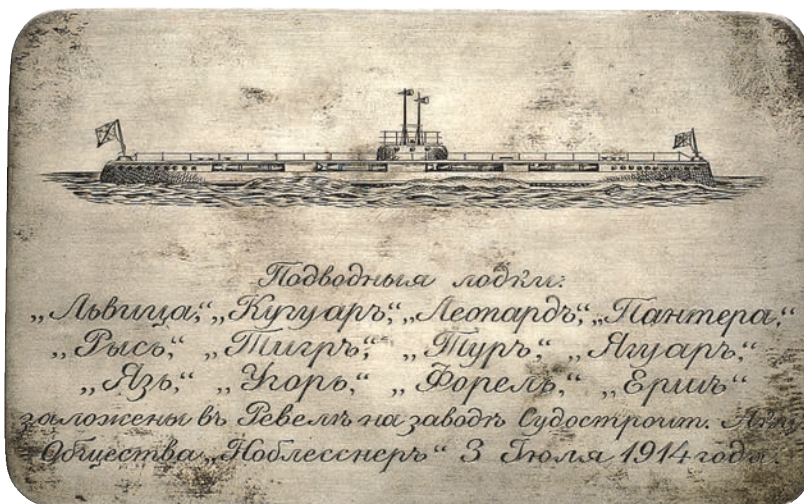 Подводныя лодки:
„Львица,“ „Кугуаръ,“ „Леопардъ,“ „Пантера,“
„Рысь,“ „Тигръ,“ „Туръ,“ „Ягуаръ,“
„Язь,“ „Угорь,“ „Форель,“ „Ершъ“
заложены въ Ревелѣ на заводѣ Судостроит.
Общества „Ноблесснеръ“ 3 Іюля 1914 года.